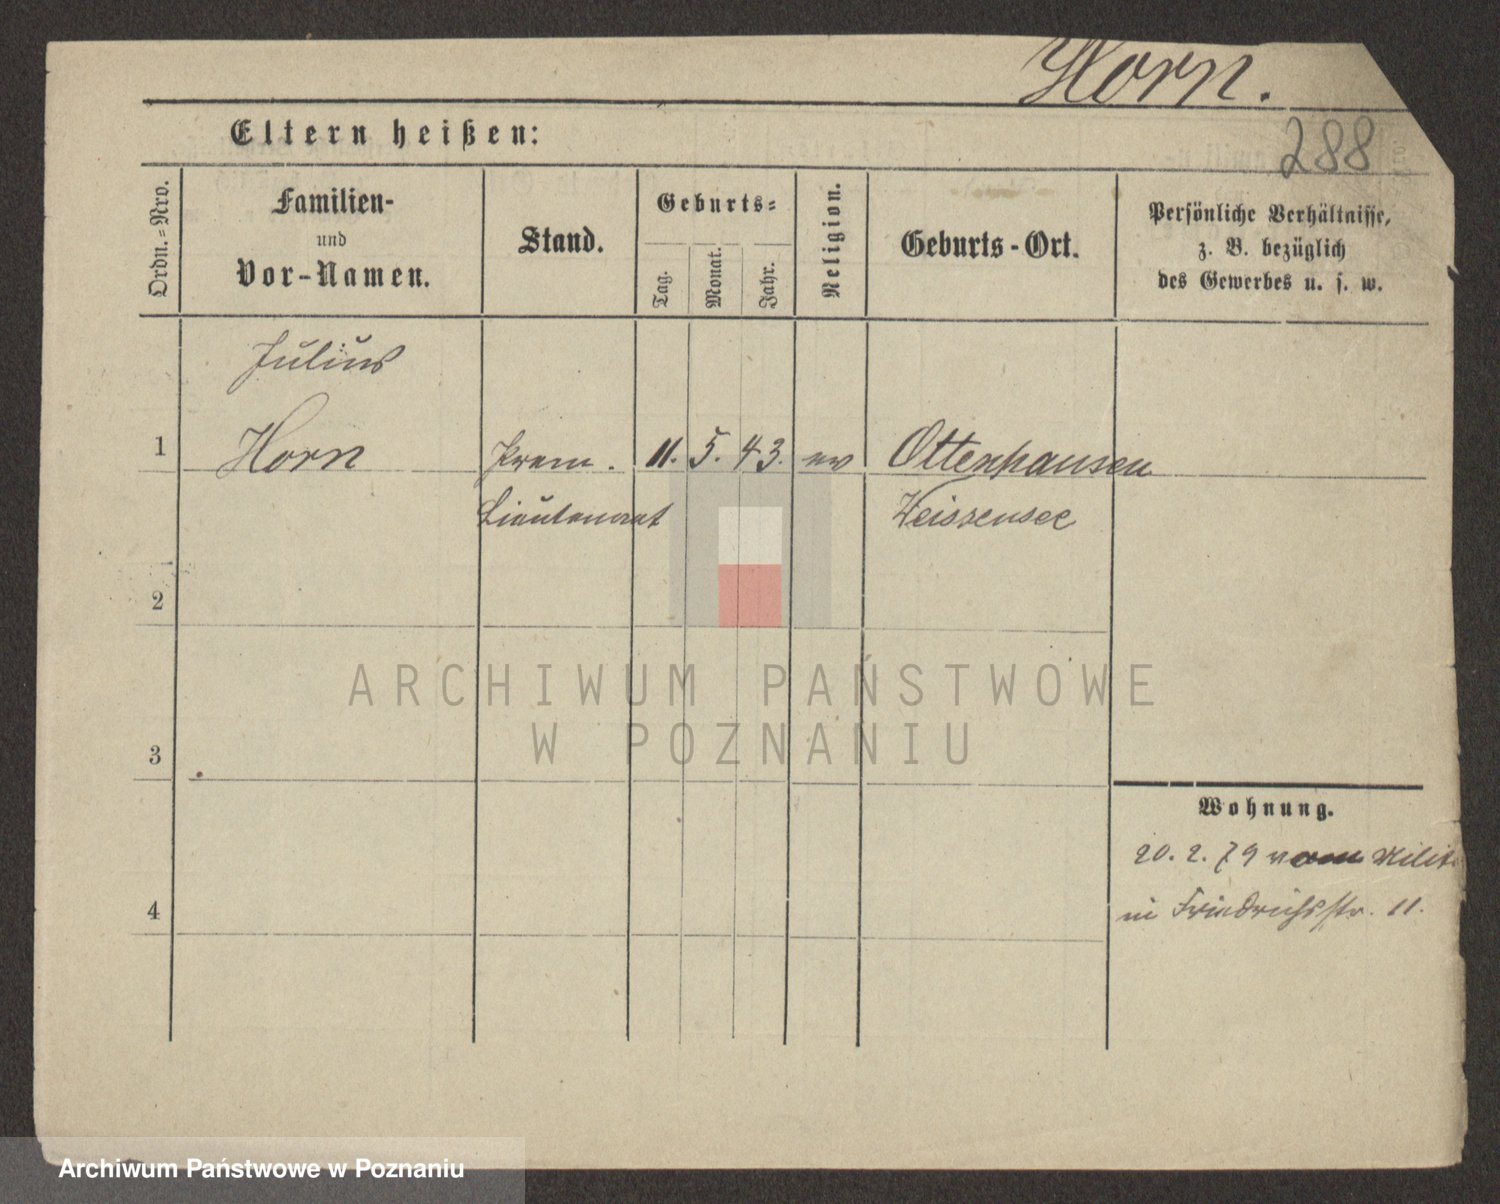 Horn.
288
Eltern heißen:
Ordn.=Nro.
Familien-
und
Vor-Namen.
Stand.
Geburts=
Tag.
Monat.
Jahr.
Religion.
Geburts-Ort.
Persönliche Verhältnisse,
z. B. bezüglich
des Gewerbes u. s. w.
Julius
1 Horn Prem. 11. 5. 43. ev Ottenhausen
Lieutenant Weissensee
2
ARCHIWUM PAŃSTWOWE
W POZNANIU
3
Wohnung.
20. 2. 79 vom Milit
in Friedrichsstr. 11.
4
Archiwum Państwowe w Poznaniu